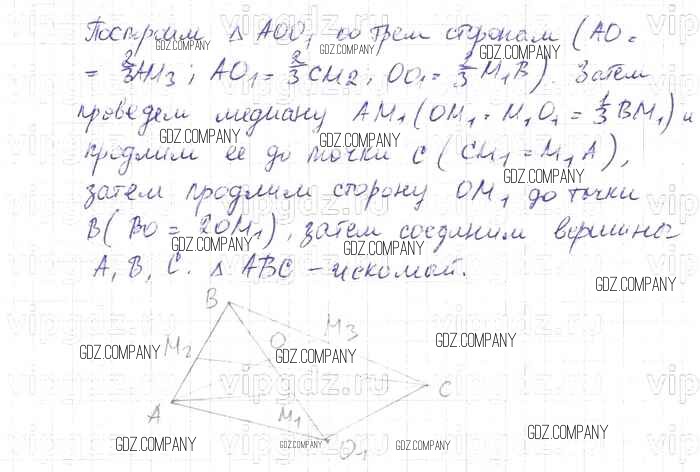 Построим Δ AOO₁ по трем сторонам (AO =
= 2/3 AM₃; AO₁ = 2/3 CM₂; OO₁ = 2/3 M₁B). Затем
проведем медиану AM₁ (OM₁ = M₁O₁ = 1/3 BM₁) и
продлим ее до точки C (CM₁ = M₁A),
затем продлим сторону OM₁ до точки
B (BO = 2OM₁), затем соединим вершины
A, B, C. Δ ABC – искомый.
B
M₃
M₂
O
C
A
M₁
O₁
GDZ.COMPANY
GDZ.COMPANY
GDZ.COMPANY
GDZ.COMPANY
GDZ.COMPANY
GDZ.COMPANY
GDZ.COMPANY
GDZ.COMPANY
GDZ.COMPANY
GDZ.COMPANY
GDZ.COMPANY
GDZ.COMPANY
GDZ.COMPANY
GDZ.COMPANY
GDZ.COMPANY
vipgdz.ru
vipgdz.ru
vipgdz.ru
vipgdz.ru